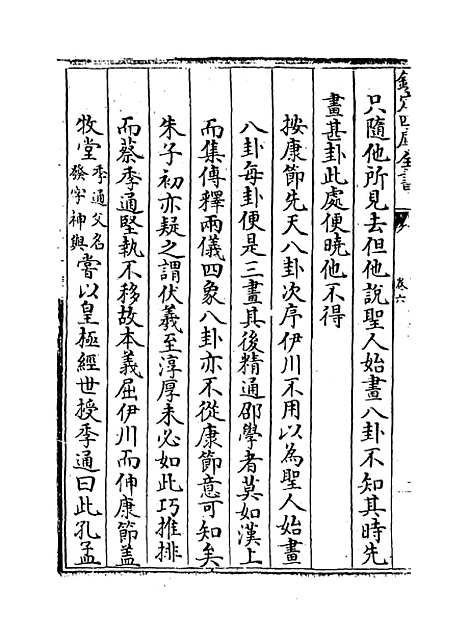 欽定四庫全書
卷六
只隨他所見去但他說聖人始畫八卦不知其時先
畫甚卦此處便曉他不得
按康節先天八卦次序伊川不用以為聖人始畫
八卦每卦便是三畫其後精通邵學者莫如漢上
而集傳釋兩儀四象八卦亦不從康節意可知矣
朱子初亦疑之謂伏羲至淳厚未必如此巧推排
而蔡季通堅執不移故本義屈伊川而伸康節蓋
牧堂季通父名發字神與嘗以皇極經世授季通曰此孔孟